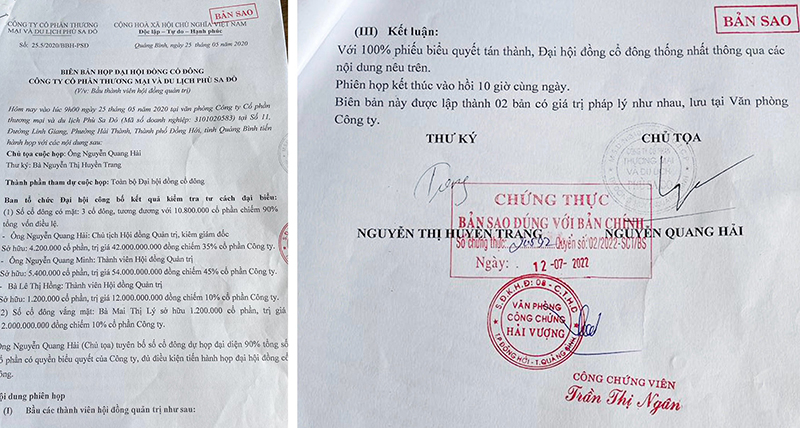 BẢN SAO
CÔNG TY CỔ PHẦN THƯƠNG
MẠI VÀ DU LỊCH PHÙ SA ĐỎ
CỘNG HOÀ XÃ HỘI CHỦ NGHĨA VIỆT NAM
Độc lập – Tự do – Hạnh phúc
Số: 25.5/2020/BBH-PSĐ
Quảng Bình, ngày 25 tháng 05 năm 2020
BIÊN BẢN HỌP ĐẠI HỘI ĐỒNG CỔ ĐÔNG
CÔNG TY CỔ PHẦN THƯƠNG MẠI VÀ DU LỊCH PHÙ SA ĐỎ
(V/v: Bầu thành viên hội đồng quản trị)
Hôm nay vào lúc 9h00 ngày 25 tháng 05 năm 2020 tại văn phòng Công ty Cổ phần
thương mại và du lịch Phù Sa Đỏ (Mã số doanh nghiệp: 3101020583) tại Số 11,
Đường Linh Giang, Phường Hải Thành, Thành phố Đồng Hới, tỉnh Quảng Bình tiến
hành họp với các nội dung sau:
Chủ tọa cuộc họp: Ông Nguyễn Quang Hải
Thư ký: Bà Nguyễn Thị Huyền Trang
Thành phần tham dự cuộc họp: Toàn bộ Đại hội đồng cổ đông.
Ban tổ chức Đại hội công bố kết quả kiểm tra tư cách đại biểu:
(1) Số cổ đông có mặt: 3 cổ đông, tương đương với 10.800.000 cổ phần chiếm 90%
tổng vốn điều lệ.
- Ông Nguyễn Quang Hải: Chủ tịch Hội đồng Quản trị, kiêm giám đốc
Sở hữu: 4.200.000 cổ phần, trị giá 42.000.000.000 đồng chiếm 35% cổ phần Công ty.
- Ông Nguyễn Quang Minh: Thành viên Hội đồng Quản trị
Sở hữu: 5.400.000 cổ phần, trị giá 54.000.000.000 đồng chiếm 45% cổ phần Công ty.
- Bà Lê Thị Hồng: Thành viên Hội đồng Quản trị
Sở hữu: 1.200.000 cổ phần, trị giá 12.000.000.000 đồng chiếm 10% cổ phần Công ty.
2) Số cổ đông vắng mặt: Bà Mai Thị Lý sở hữu 1.200.000 cổ phần, trị giá
2.000.000.000 đồng chiếm 10% cổ phần Công ty.
Ông Nguyễn Quang Hải (Chủ tọa) tuyên bố số cổ đông dự họp đại diện 90% tổng số
ổ phần có quyền biểu quyết của Công ty, đủ điều kiện tiến hành họp đại hội đồng cổ
ông.
ội dung phiên họp
(I) Bầu các thành viên hội đồng quản trị như sau:
BẢN SAO
(III) Kết luận:
Với 100% phiếu biểu quyết tán thành, Đại hội đồng cổ đông thống nhất thông qua các
nội dung nêu trên.
Phiên họp kết thúc vào hồi 10 giờ cùng ngày.
Biên bản này được lập thành 02 bản có giá trị pháp lý như nhau, lưu tại Văn phòng
Công ty.
THƯ KÝ
CHỦ TỌA
THƯƠNG MẠI
VÀ DU LỊCH
CHỨNG THỰC
BẢN SAO ĐÚNG VỚI BẢN CHÍNH
NGUYỄN THỊ HUYỀN TRANG
NGUYỄN QUANG HẢI
Số chứng thực: Quyển số: 02/2022-SCT/BS
Ngày: 12-07-2022
S.Đ.K.H.Đ: 08 - C.T.H.D
VĂN PHÒNG
CÔNG CHỨNG
HẢI VƯỢNG
TP ĐỒNG HỚI - T. QUẢNG BÌNH
CÔNG CHỨNG VIÊN
Trần Thị Ngân